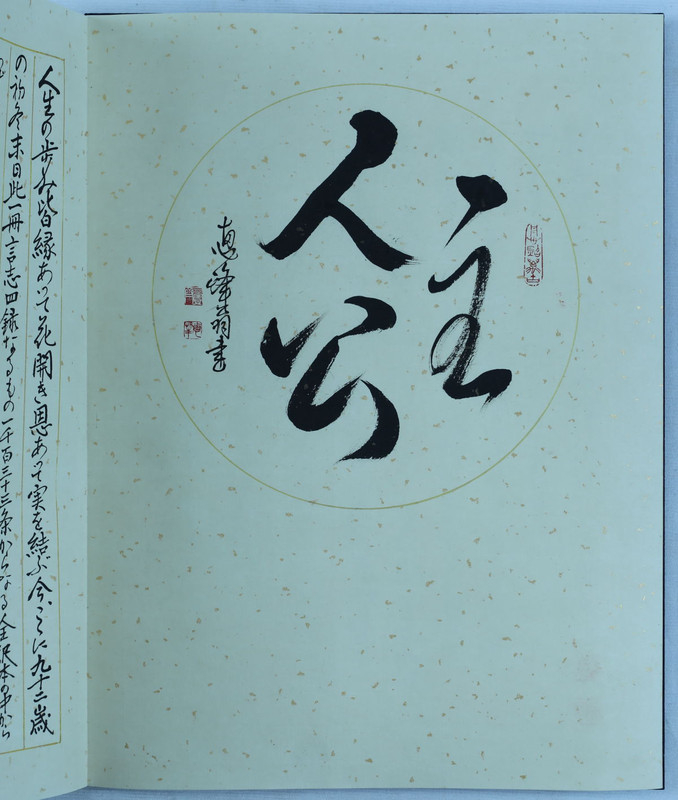 主
人公
恵峰翁書
人生の歩み皆縁あって花開き恩あって実を結ぶ今ここに九十二歳
の初冬末日此一冊言志四録なるもの一千百三十三条からなる全訳本の中から